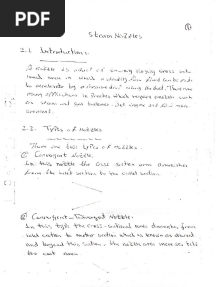 PDF
Steam Nozzles
2.1. Introduction:
A nozzle is a duct of smoothly varying cross sect
area in which a steadily flow fluid can be made
to accelerate by a pressure drop along the duct. There are
many applications in practice which require nozzles such
as steam and gas turbines, jet engine and flow mea-
surement.
2.2. Types of Nozzles
There are two types of nozzles
① Convergent nozzle.
In this nozzle the cross section area diminishes
from the inlet section to the outlet section.
② Convergent - Divergent Nozzle:
In this type the cross-sectional area diminishes from
inlet section to section which is known as throat
and beyond this section, the nozzle area increases till
the exit area.